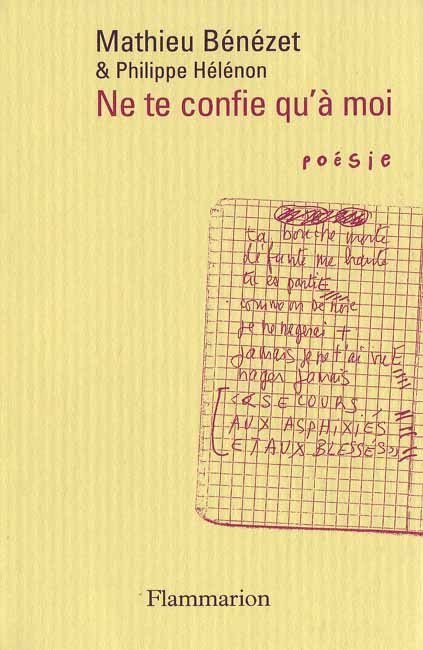 Mathieu Bénézet
& Philippe Hélénon
Ne te confie qu'à moi
poésie
ta bouche morte
défunte me hante
tu es partie
comme on se noie
je ne nagerai +
jamais je ne t'ai vuE
nager jamais
<<SECOURS
AUX ASPHIXIÉS
ET AUX BLESSÉS>>
Flammarion